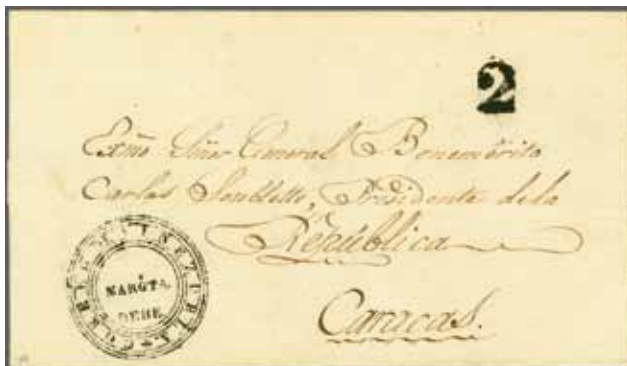 2
Exmo Señor General Benemérito
Carlos Soublette, Presidente de la
República
Caracas.
CORREOS DE VENEZUELA
MARGTA
DEBE